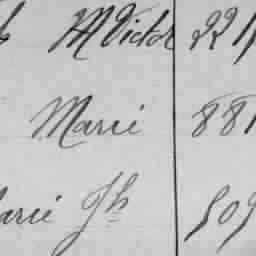 M Victor 221
Marie 881
Marie Jh 509